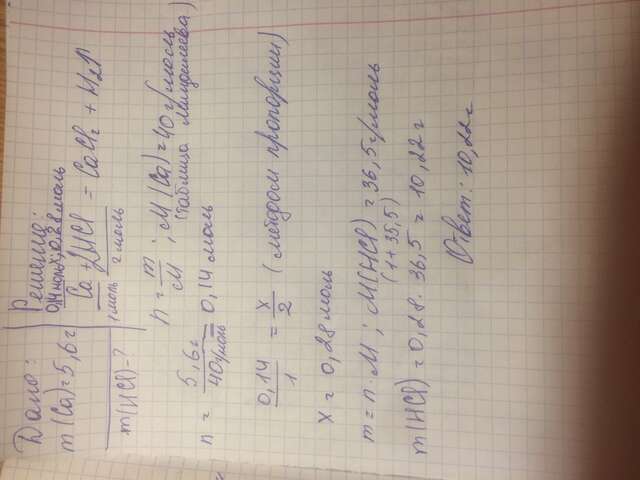 Дано:
m(Ca)=5,6г
m(HCl)-?
Решение:
0,14моль x; 0,28моль
Ca + 2HCl = CaCl₂ + H₂↑
1моль 2моль
n = m/M ; M(Ca)=40г/моль
(таблица Менделеева)
n = 5,6г/40г/моль = 0,14 моль
0,14/1 = x/2 (методом пропорции)
x = 0,28 моль
m = n · M ; M(HCl) = 36,5г/моль
(1+35,5)
m(HCl) = 0,28 · 36,5 = 10,22г
Ответ: 10,22г